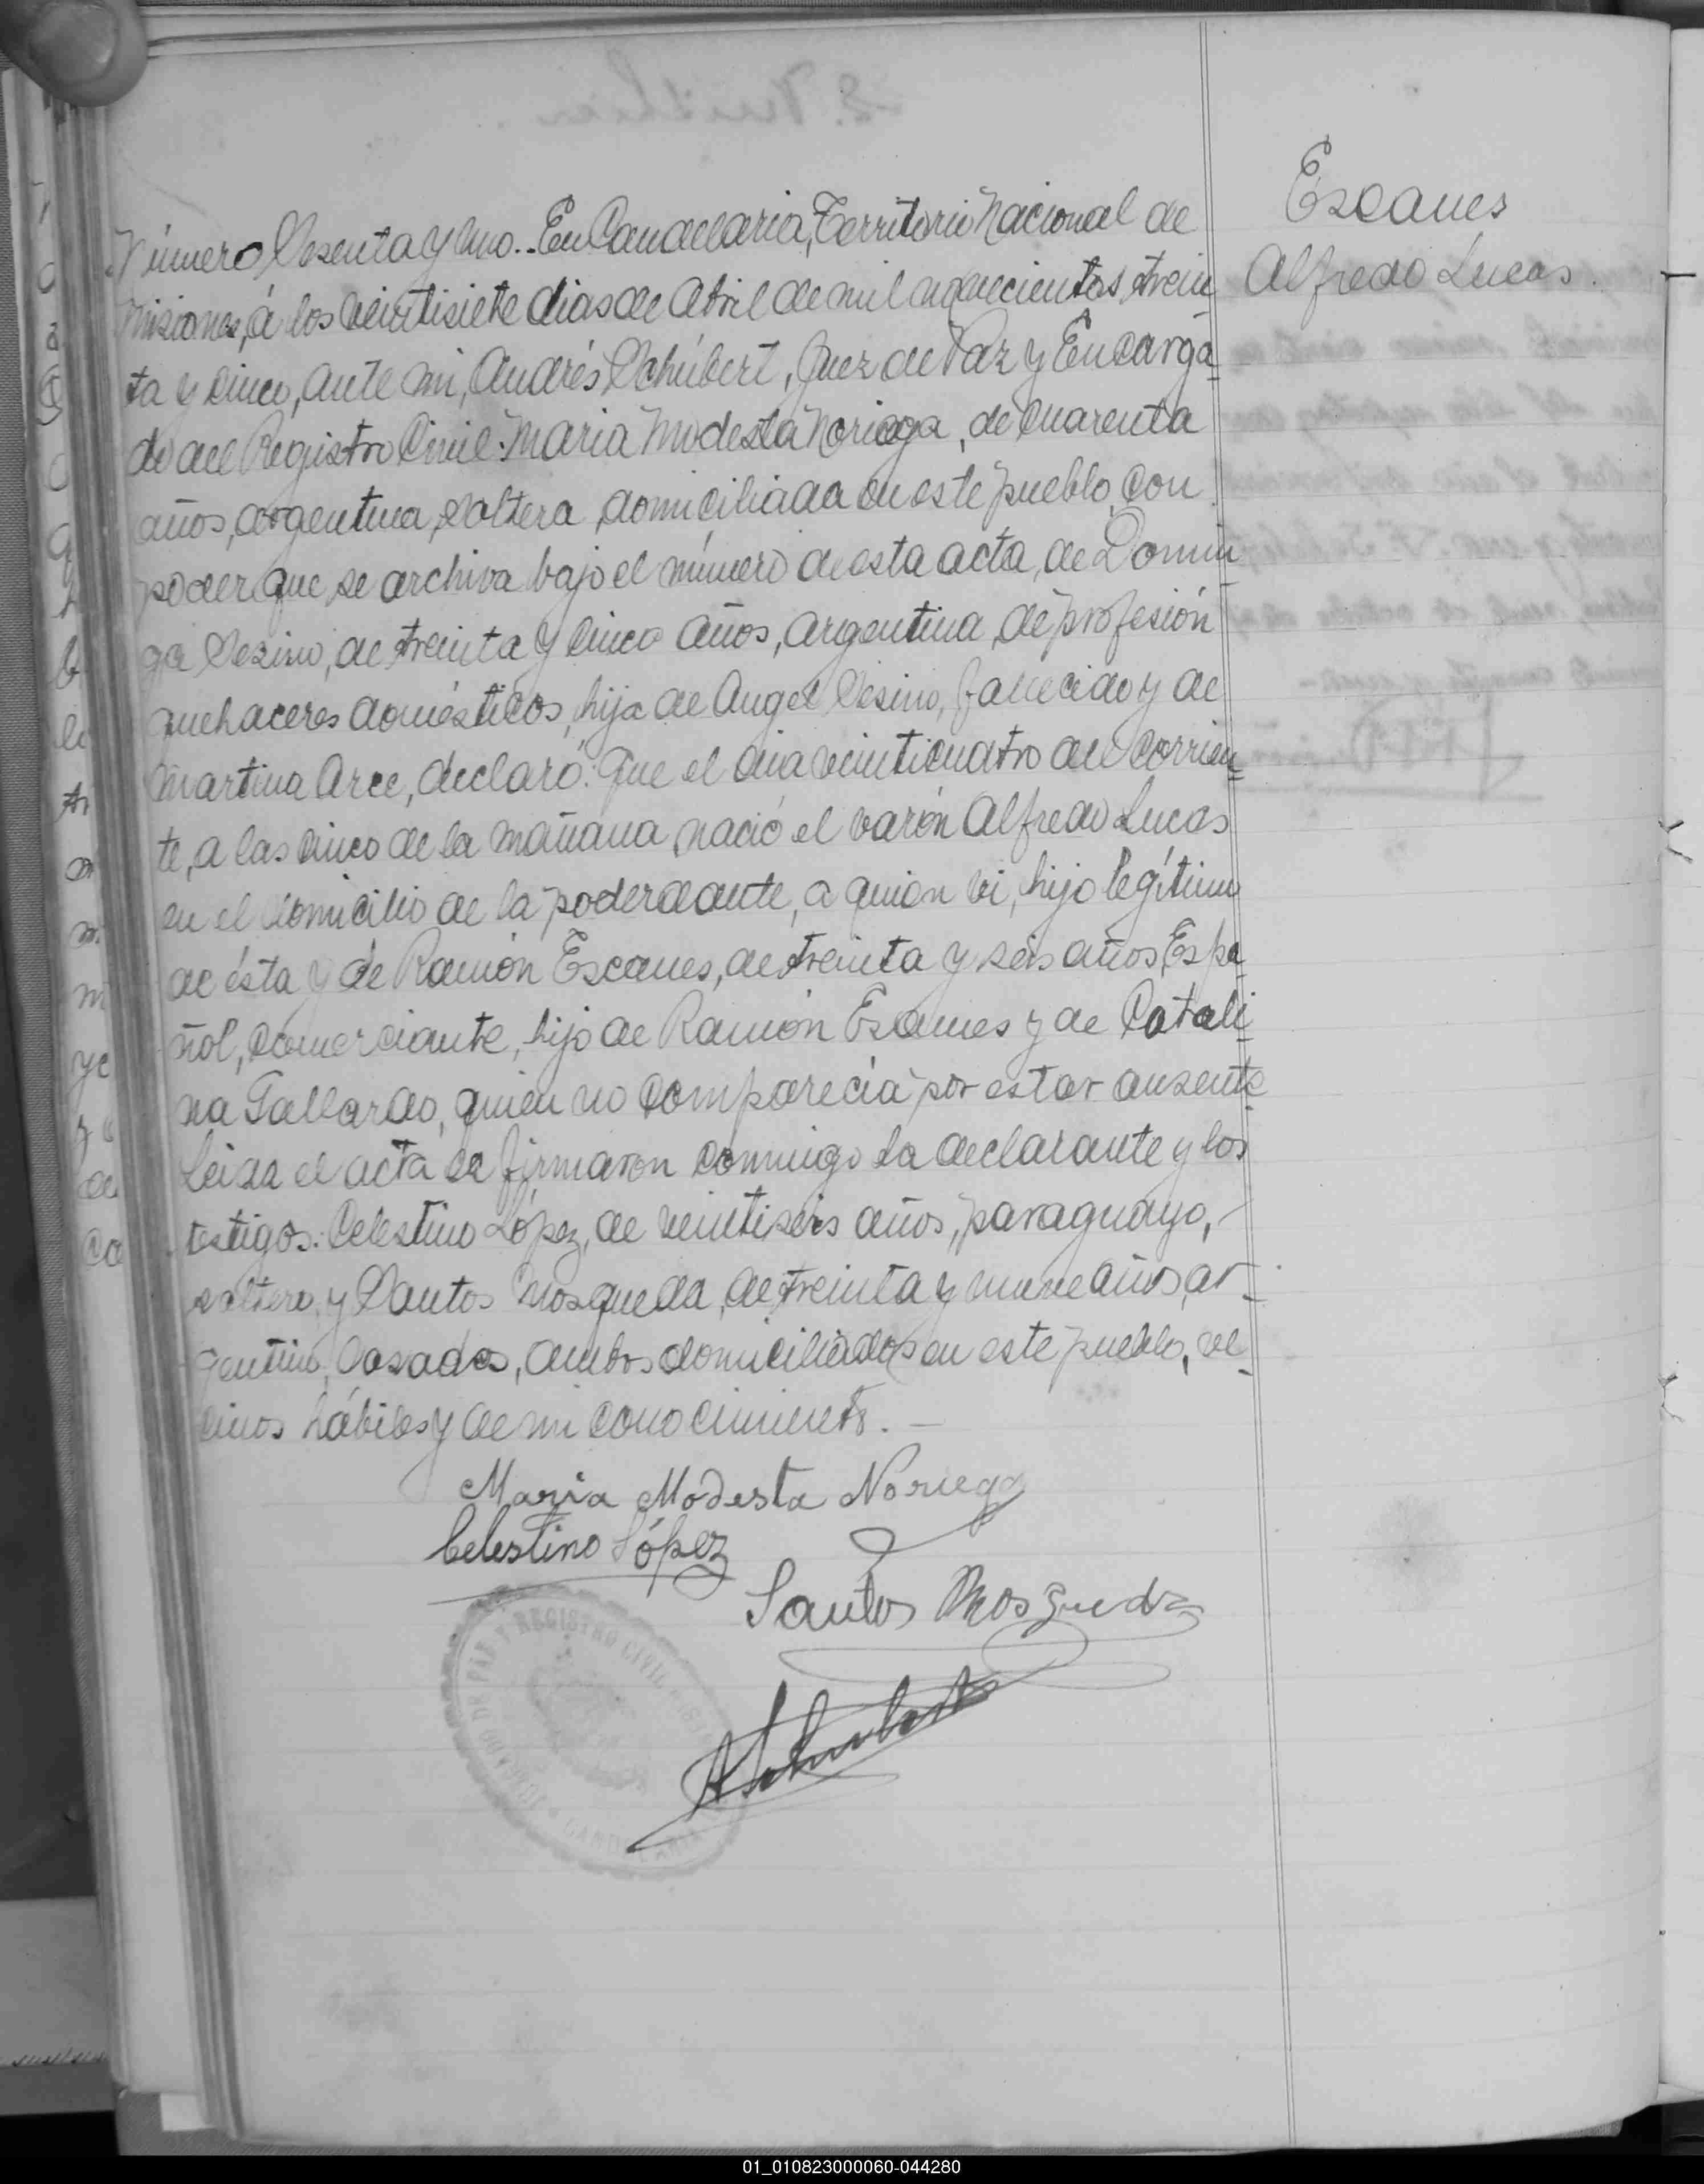 Escanes
Alfredo Lucas
Número Sesenta y uno.- En Candelaria, Territorio Nacional de
Misiones, á los veintisiete dias de Abril de mil novecientos trein
ta y cinco, ante mi, Andrés Schúbert, Juez de Paz y Encarga
do del Registro Civil: Maria Modesta Noriega, de cuarenta
años, argentina, soltera, domiciliada en este pueblo, con
poder que se archiva bajo el número de esta acta, de Domin
ga Sesino, de treinta y cinco años, argentina, de profesión
quehaceres domésticos, hija de Angel Sesino, fallecido y de
Martina Arce, declaró: que el dia veinticuatro del corrien
te, a las cinco de la mañana nació el varón Alfredo Lucas
en el domicilio de la poderdante, a quien vi, hijo legítimo
de ésta y de Ramón Escanes, de treinta y seis años, Espa
ñol, comerciante, hijo de Ramón Escanes y de Catali
na Gallardo, quien no comparecia por estar ausente
Leida el acta la firmaron conmigo la declarante y los
testigos: Celestino López, de veintiseis años, paraguayo,
soltero, y Santos Mosqueda, de treinta y nueve años, ar
gentino, casados, ambos domiciliados en este pueblo, ve
cinos hábiles y de mi conocimiento.-
Maria Modesta Noriega
Celestino López
Santos Mosqueda
A Schubert
JUZGADO DE PAZ Y REGISTRO CIVIL
CANDELARIA
01_010823000060-044280